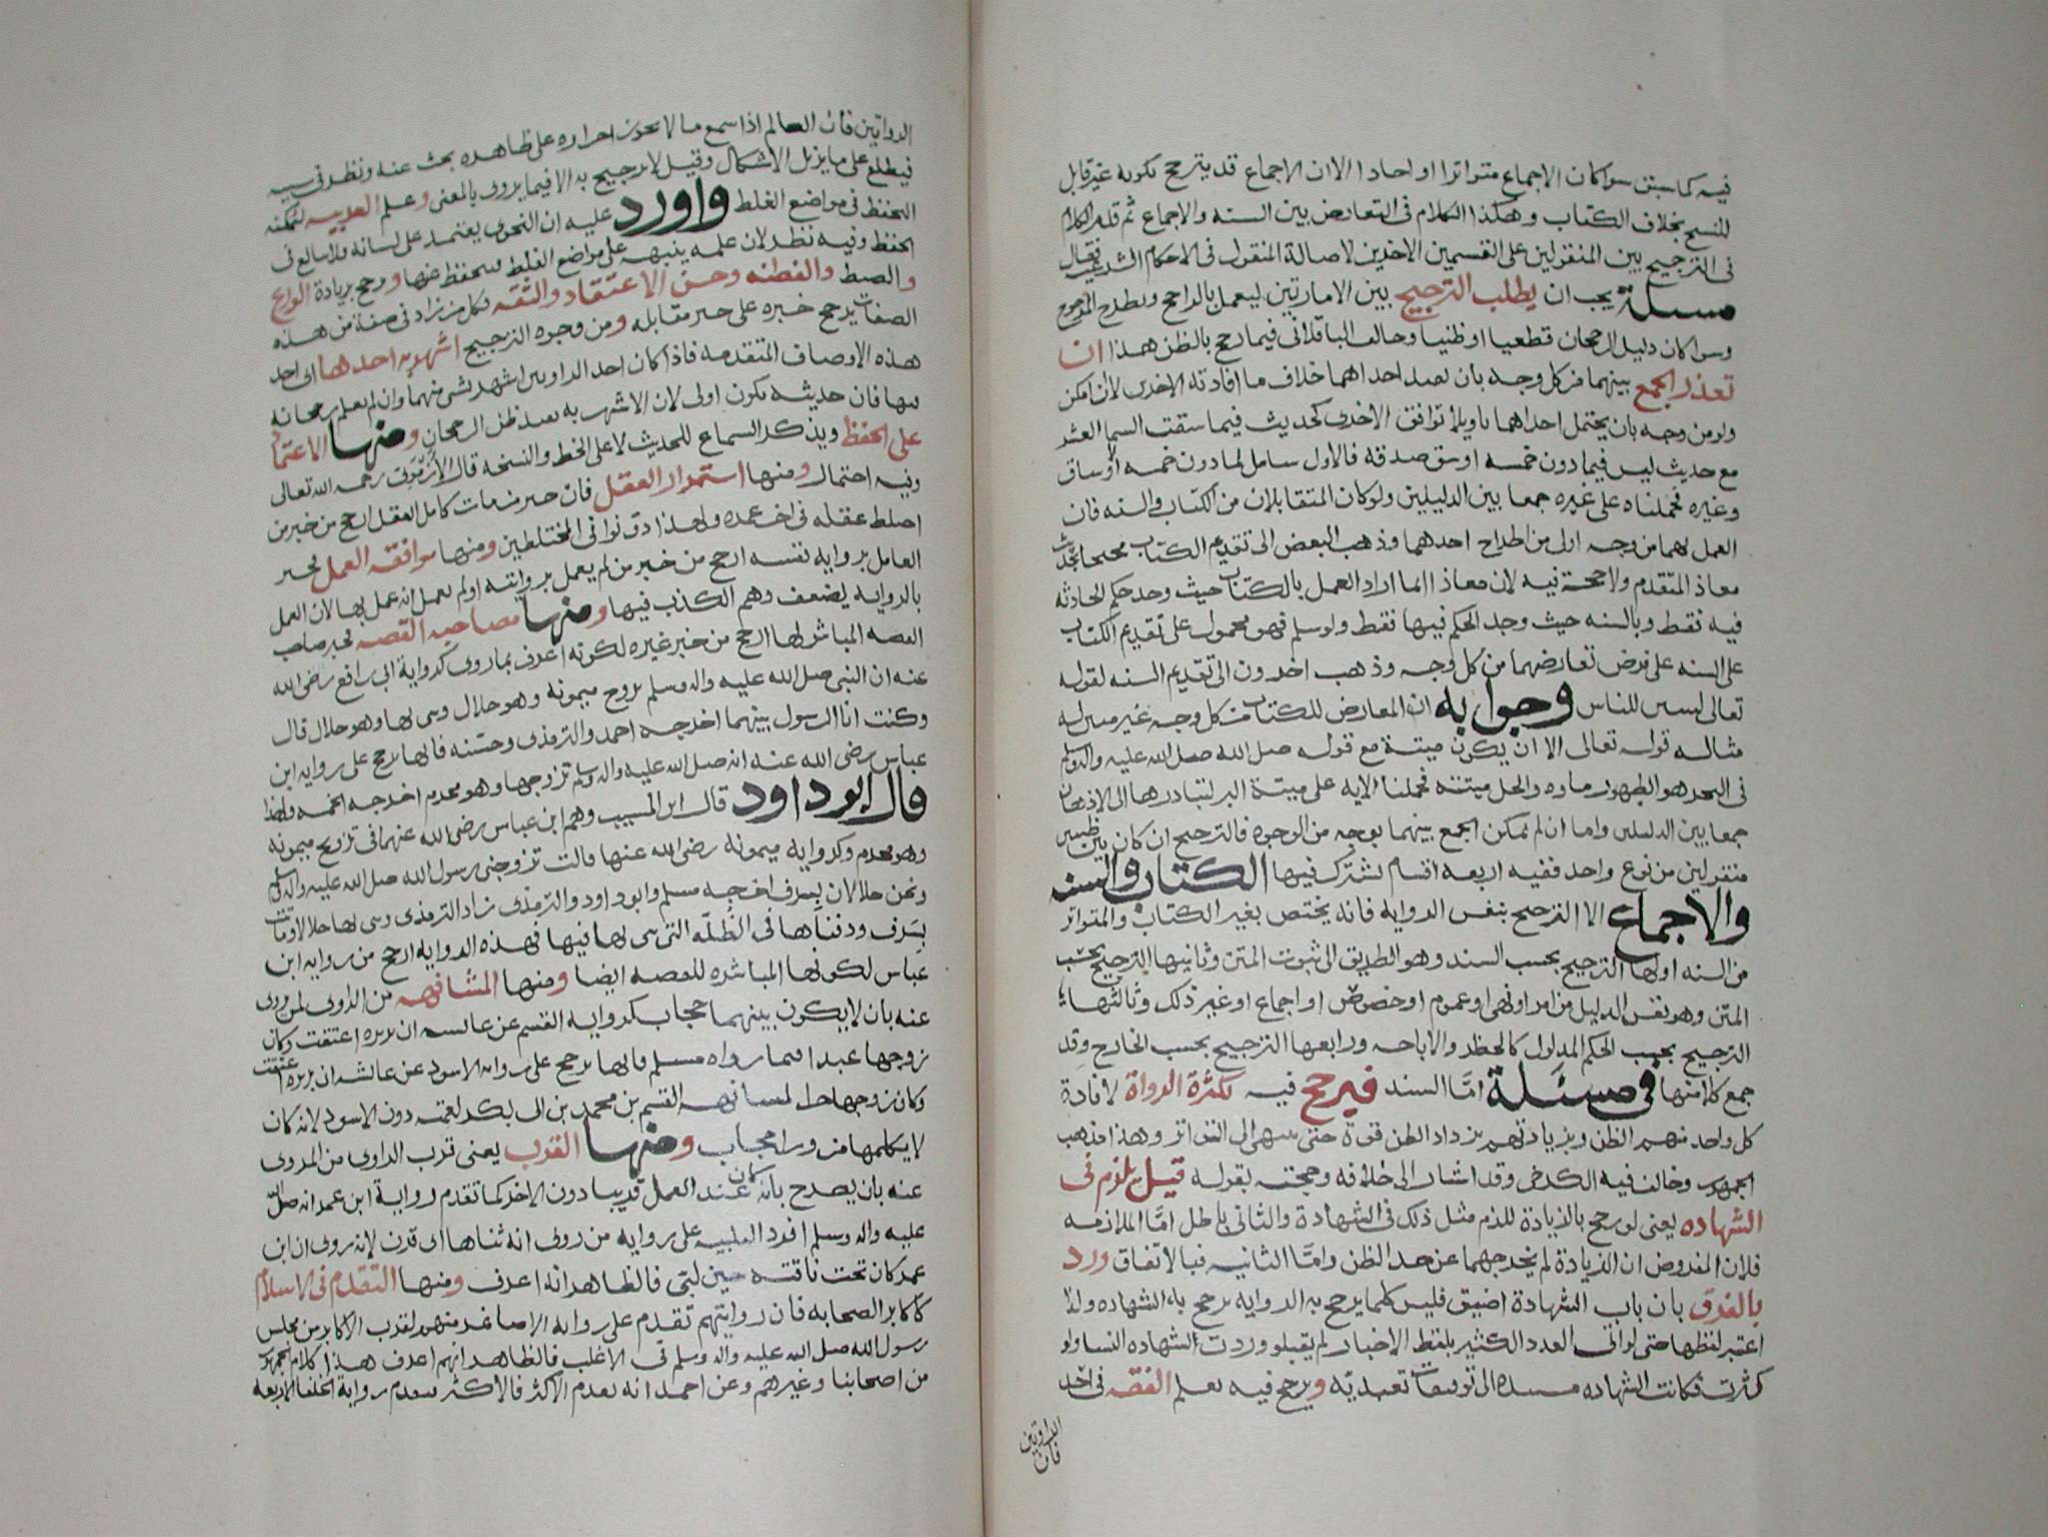 فيه كما سبق سوا كان الاجماع متواترا او احادا الا ان الاجماع قد يترجح بكونه غير قابل
للنسخ بخلاف الكتاب وهكذا الكلام فى التعارض بين السنه والاجماع ثم قدم الكلام
فى الترجيح بين المنقولين على القسمين الاخرين لاصالة المنقول فى الاحكام الشرعيه فقال
مسئلة يجب ان يطلب الترجيح بين الامارتين ليعمل بالراجح ويطرح المرجوح
وسوا كان دليل الرجحان قطعيا او ظنيا وخالف الباقلانى فيما رجح بالظن هذا ان
تعذر الجمع بينهما من كل وجه بان تفيد احداهما خلاف ما افادته الاخرى لا ان امكن
ولو من وجه بان يحتمل احداهما تاويلا توافق الاخرى كحديث فيما سقت السما العشر
مع حديث ليس فيما دون خمسه اوسق صدقه فالاول شامل لما دون خمسه اوساق
وغيره فحملناه على غيره جمعا بين الدليلين ولو كان المتقابلان من الكتاب والسنه فان
العمل بهما من وجه اولى من اطراح احدهما وذهب البعض الى تقديم الكتاب محتجا بحديث
معاذ المتقدم ولا حجة فيه لان معاذا انما اراد العمل بالكتاب حيث وجد حكم الحادثه
فيه فقط وبالسنه حيث وجد الحكم فيها فقط ولو سلم فهو محمول على تقديم الكتاب
على السنه على فرض تعارضهما من كل وجه وذهب اخرون الى تقديم السنه لقوله
تعالى لتبين للناس وجوابه ان المعارض للكتاب من كل وجه غير مبين له
مثاله قوله تعالى الا ان يكون ميتة مع قوله صلى الله عليه واله وسلم
فى البحر هو الطهور ماوه والحل ميتته فحملنا الايه على ميتة البر لتبادرها الى الاذهان
جمعا بين الدليلين واما ان لم يمكن الجمع بينهما بوجه من الوجوه فالترجيح ان كان بين ظنيين
منقولين من نوع واحد ففيه اربعه اقسام يشترك فيها الكتاب والسنه
والاجماع الا الترجيح بنفس الروايه فانه يختص بغير الكتاب والمتواتر
من السنه اولها الترجيح بحسب السند وهو الطريق الى ثبوت المتن وثانيها الترجيح بحسب
المتن وهو نفس الدليل من امر او نهى او عموم او خصوص او اجماع او غير ذلك وثالثها
الترجيح بحسب الحكم المدلول كالحظر والاباحه ورابعها الترجيح بحسب الخارج وقد
جمع كلا منها فى مسئلة امّا السند فيرجح فيه بكثرة الرواة لافادة
كل واحد منهم الظن وبزيادتهم يزداد الظن قوة حتى ينتهى الى التواتر وهذا مذهب
الجمهور وخالف فيه الكرخى وقد اشار الى خلافه وحجته بقوله قيل يلزم فى
الشهاده يعنى لو رجح بالزيادة للزم مثل ذلك فى الشهادة والثانى باطل امّا الملازمه
فلان المفروض ان الزيادة لم يخرجهما عن حد الظن وامّا الثانيه فبالاتفاق ورد
بالفرق بان باب الشهادة اضيق فليس كلما يرجح به الروايه يرجح به الشهاده ولذا
اعتبر لفظها حتى لو اتى العدد الكثير بلفظ الاخبار لم يقبلو وردت الشهاده النسا ولو
كثرت فكانت الشهاده مستنده الى توقيفات تعبديّه ويرجح فيه بعلم الفقه فى احد
الراويين
فان
الراويين فان العالم اذا سمع ما لا يجوز اجراءه على ظاهره بحث عنه ونظر فى سببه
فيطلع على ما يزيل الاشكال وقيل لا ترجيح به الا فيما يروى بالمعنى وعلم العربيه لتمكنه
التحفظ فى مواضع الغلط واورد عليه ان النحوى يعتمد على لسانه فلا يبالغ فى
الحفظ وفيه نظر لان علمه ينبهه على مواضع الغلط فيتحفظ عنها ورجح بزيادة الورع
والضبط والفطنه وحسن الاعتقاد والثقه فكل من زاد فى صفة من هذه
الصفات يرجح خبره على خبر مقابله ومن وجوه الترجيح اشهريه احدهما اى احد
هذه الاوصاف المتقدمه فاذا كان احد الراويين اشهر بشى منهما وان لم يعلم رجحانه
بها فان حديثه يكون اولى لان الاشهريه تفيد ظن الرجحان ومنها الاعتماد
على الحفظ ويذكر السماع للحديث لا على الخط والنسخه قال الازرقى رحمه الله تعالى
وفيه احتمال ومنها استمرار العقل فان خبر من مات كامل العقل ارجح من خبر من
اختلط عقله فى اخر عمره ولهذا دونوا فى المختلطين ومنها موافقه العمل لخبر
العامل بروايه نفسه ارجح من خبر من لم يعمل بروايته او لم يعلم انه عمل بها لان العمل
بالروايه يضعف وهم الكذب فيها ومنها مصاحبه القصه لخبر صاحب
القصه المباشر لها ارجح من خبر غيره لكونه اعرف بما روى كرواية ابى رافع رضى الله
عنه ان النبى صلى الله عليه واله وسلم تزوج ميمونه وهو حلال وبنى بها وهو حلال قال
وكنت انا الرسول بينهما اخرجه احمد والترمذى وحسّنه فانها ترجح على روايه ابن
عباس رضى الله عنه انه صلى الله عليه واله وسلم تزوجها وهو محرم اخرجه الخمسه ولهذا
قال ابو داود قال ابن المسيب وهم ابن عباس رضى الله عنهما فى تزويج ميمونه
وهو محرم وكروايه ميمونه رضى الله عنها قالت تزوجنى رسول الله صلى الله عليه واله وسلم
ونحن حلالان بسرف اخرجه مسلم وابو داود والترمذى زاد الترمذى وبنى بها حلالا وماتت
بسرف ودفناها فى الظُلّه التى بنى بها فيها فهذه الروايه ارجح من روايه ابن
عباس لكونها المباشره للقصه ايضا ومنها المشافهه من الراوى لمن روى
عنه بان لا يكون بينهما حجاب كروايه القسم عن عائشه ان بريره اعتقت وكان
زوجها عبدا فيما رواه مسلم فانها ترجح على روايه الاسود عن عائشه ان بريره اعتقت
وكان زوجها حرا لمشافهه القسم بن محمد بن ابى بكر لعمته دون الاسود لانه كان
لا يكلمها من ورا حجاب ومنها القرب يعنى قرب الراوى من المروى
عنه بان يصرح بانه كان عند العمل قريبا دون الاخر كما تقدم رواية ابن عمر انه صلى الله
عليه واله وسلم افرد التلبيه على روايه من روى انه ثناها اى قرن لانه روى ان ابن
عمر كان تحت ناقته حين لبّى فالظاهر انه اعرف ومنها التقدم فى الاسلام
كاكابر الصحابه فان روايتهم تقدم على روايه الاصاغر منهم لقرب الاكابر من مجلس
رسول الله صلى الله عليه واله وسلم فى الاغلب فالظاهر انهم اعرف هذا كلام الجمهور
من اصحابنا وغيرهم وعن احمد انه يقدم الاكثر فالاكثر فيقدم رواية الخلفا الاربعه